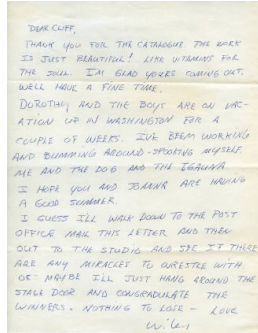 DEAR CLIFF,
THANK YOU FOR THE CATALOGUE THE WORK
IS JUST BEAUTIFUL! LIKE VITAMINS FOR
THE SOUL. I'M GLAD YOU'RE COMING OUT.
WE'LL HAVE A FINE TIME.
DOROTHY AND THE BOYS ARE ON VAC-
ATION UP IN WASHINGTON FOR A
COUPLE OF WEEKS. I'VE BEEN WORKING
AND BUMMING AROUND - SPOOKING MYSELF
ME AND THE DOG AND THE IGAUNA
I HOPE YOU AND JOANNA ARE HAVING
A GOOD SUMMER.
I GUESS I'LL WALK DOWN TO THE POST
OFFICE MAIL THIS LETTER AND THEN
OUT TO THE STUDIO AND SEE IF THERE
ARE ANY MIRACLES TO WRESTLE WITH.
OR MAYBE I'LL JUST HANG AROUND THE
STAGE DOOR AND CONGRADULATE THE
WINNERS. NOTHING TO LOSE - LOVE